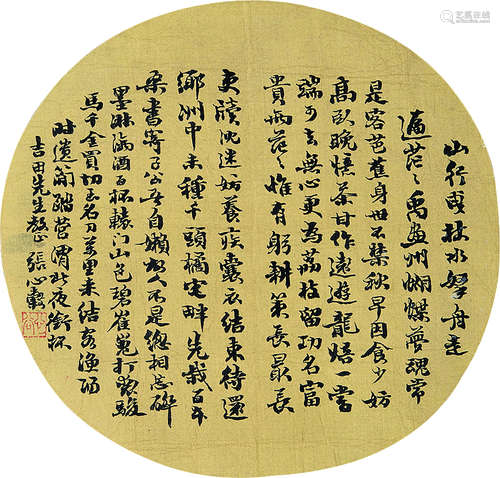 艺狐在线
山行或扶水拏舟走
遍茫々禹画州蝴蝶夢魂常
是客芭蕉身世不禁秋早因食少妨
高臥晚悟茶甘作遠遊龍焙一嘗
端可去無心更為荔枝留功名富
貴兩茫々惟有躬耕策最長
吏牘沈迷妨養疾囊衣結束待還
鄉洲中未種千頭橘宅畔先栽百本
桑書寄子公吾自嬾故人不是總相忘醉
墨淋漓酒百杯轅門山色碧崔嵬打毬駿
馬千金買切玉名刀萬里來結客漁陽
時遣簡踏營渭北夜銜杯
吉田先生教正張心